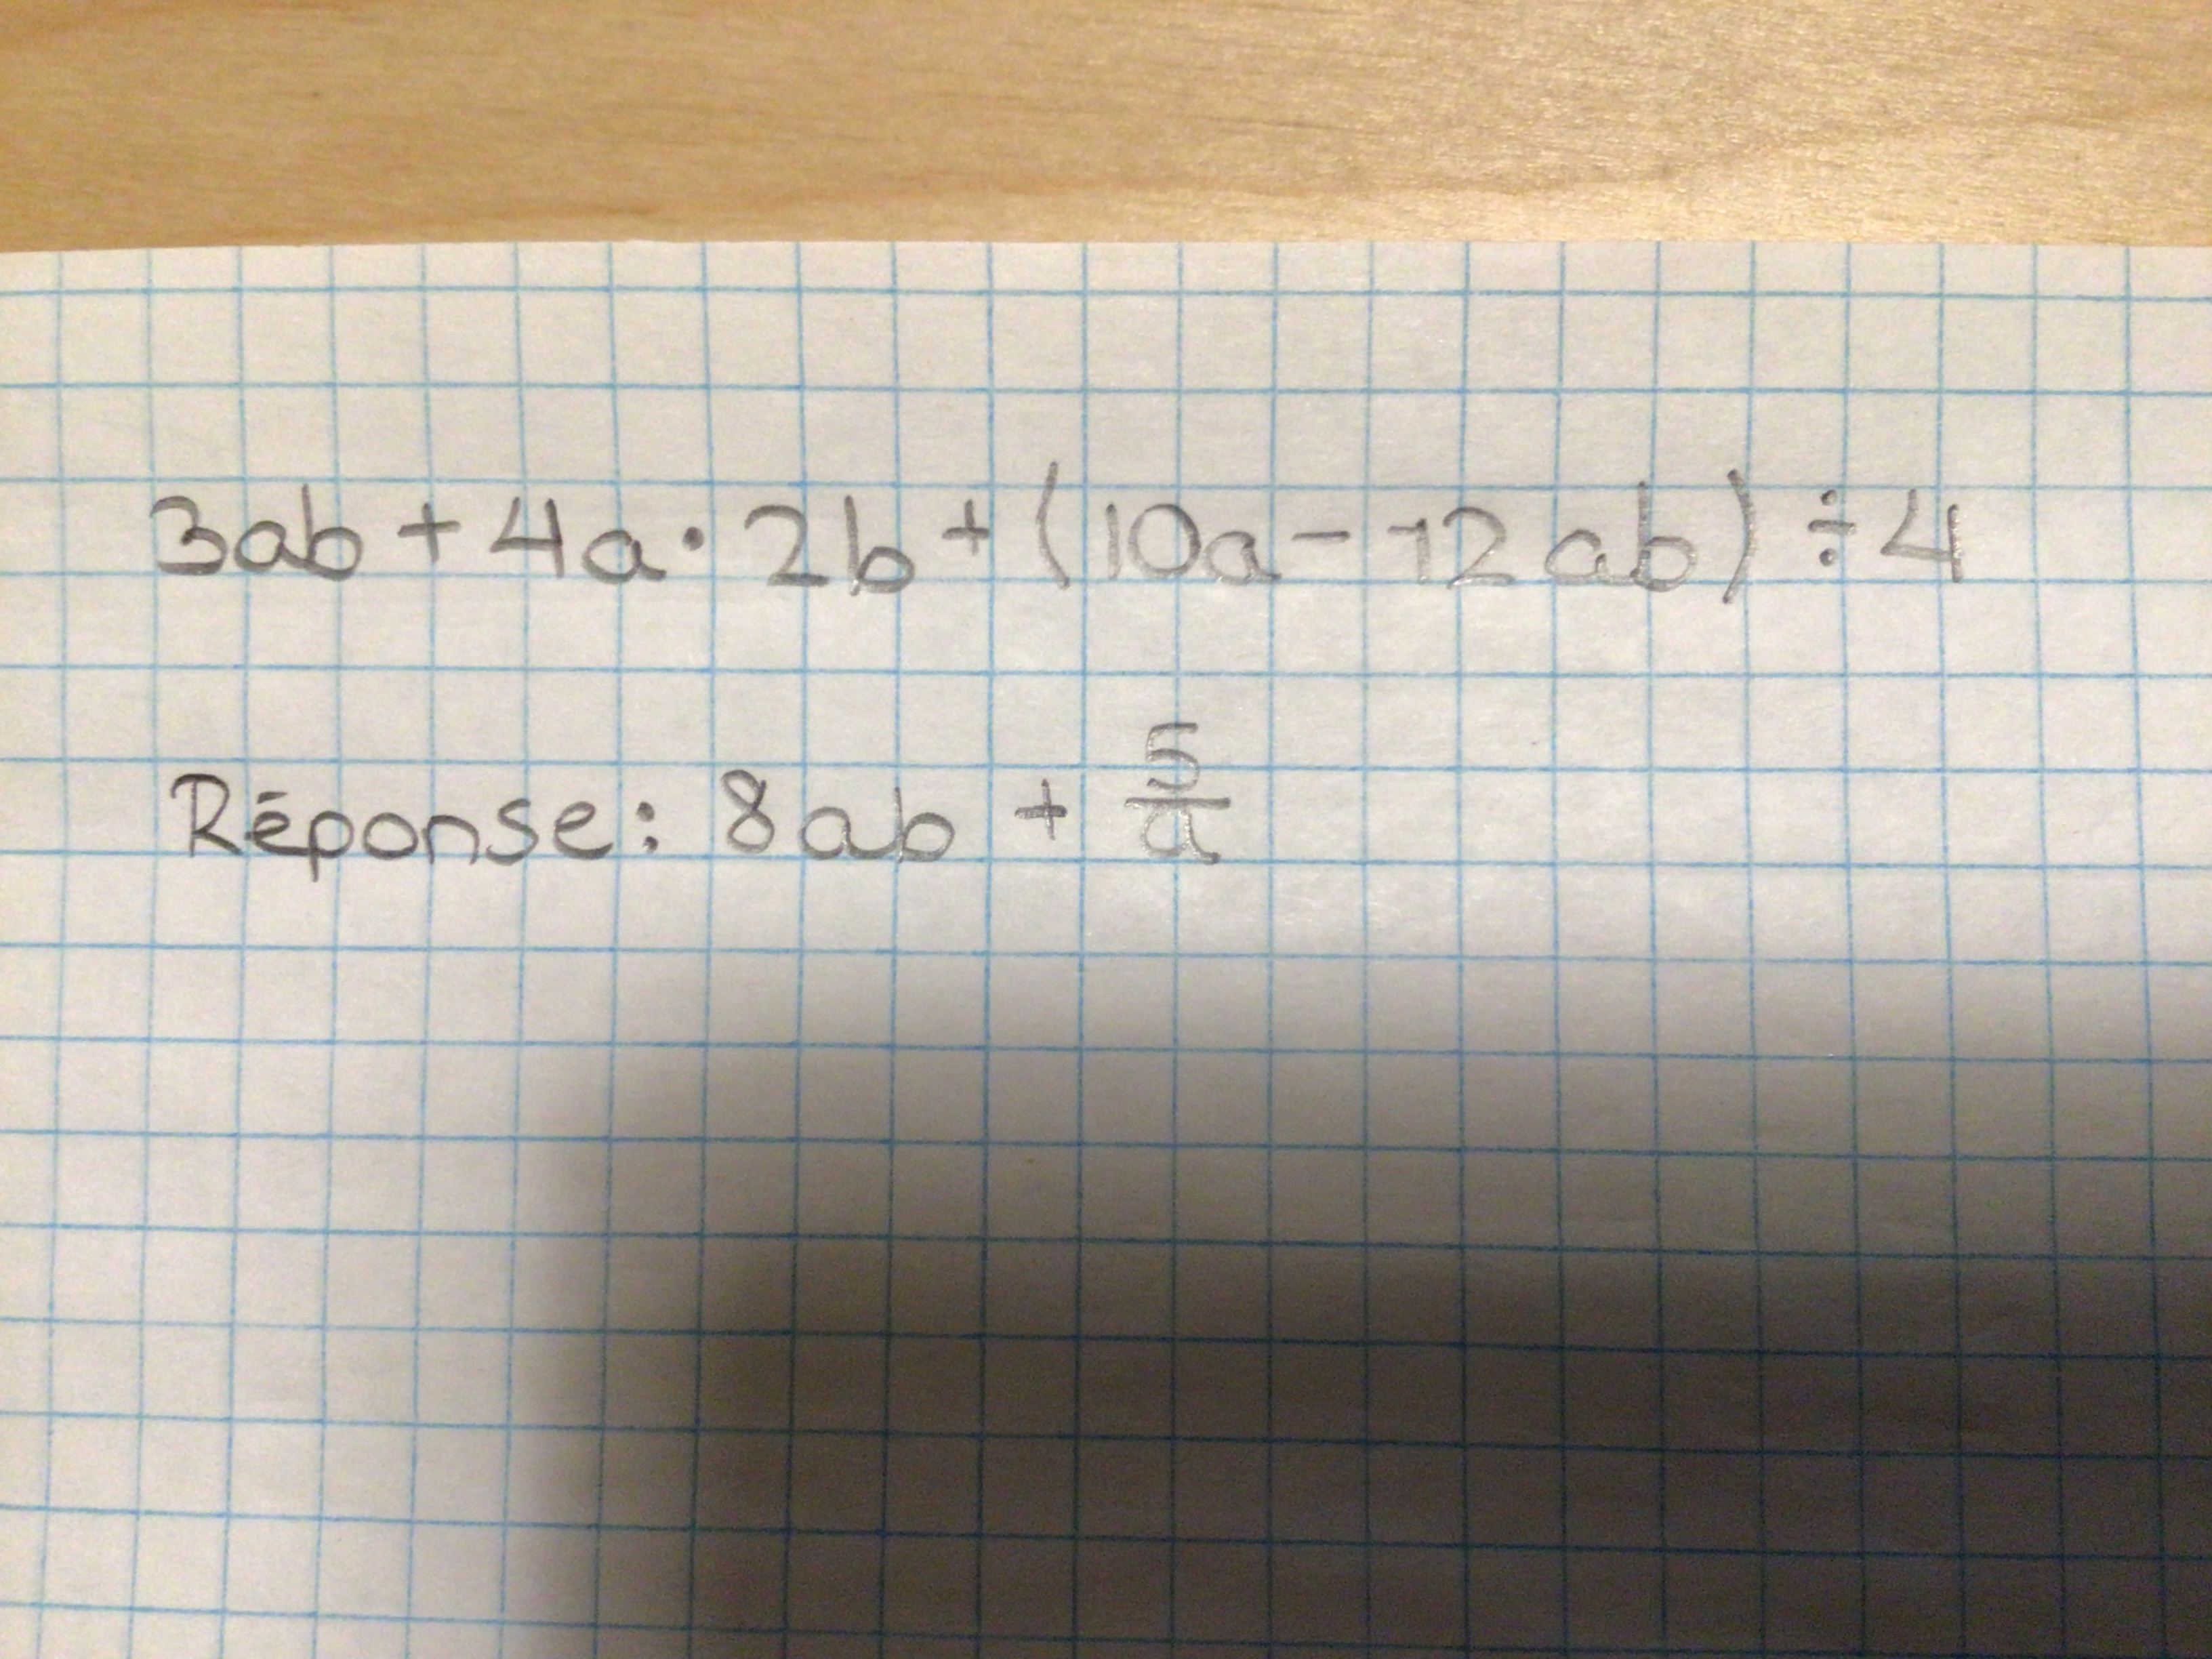 3ab + 4a · 2b + (10a - 12ab) ÷ 4
Réponse: 8ab + 5/a